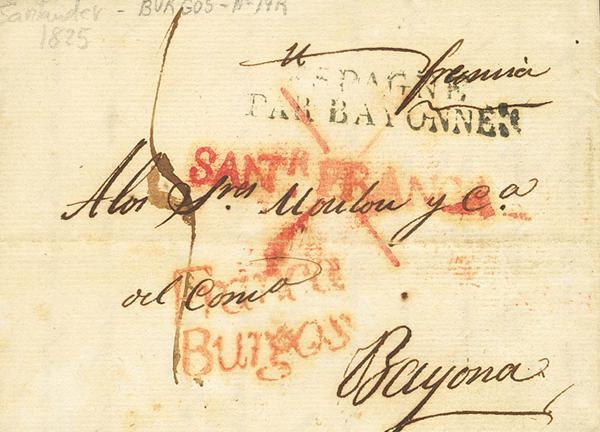 Santander - BURGOS - N-14R
1825
francia
ESPAGNE
PAR BAYONNE
SANTR FRANCA
A los Sres Moulon y Ca
del Como
Franca
Burgos
Bayona